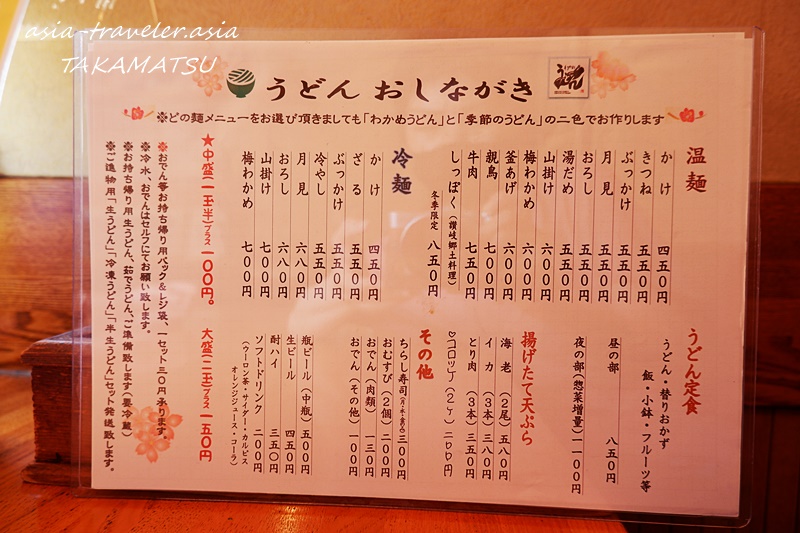 asia-traveler.asia
TAKAMATSU
うどん おしながき
※どの麺メニューをお選び頂きましても「わかめうどん」と「季節のうどん」の二色でお作りします
温麺
かけ 四五〇円
きつね 五五〇円
ぶっかけ 五五〇円
月見 五五〇円
おろし 五五〇円
湯だめ 五五〇円
山掛け 六〇〇円
梅わかめ 六〇〇円
釜あげ 六〇〇円
親鳥 七五〇円
牛肉 七五〇円
しっぽく(讃岐郷土料理)
冬季限定 八五〇円
冷麺
かけ 四五〇円
ざる 五五〇円
ぶっかけ 五五〇円
冷やし 五五〇円
月見 六八〇円
おろし 六八〇円
山掛け 七〇〇円
梅わかめ 七〇〇円
★中盛(一玉半)プラス 一〇〇円。
大盛(二玉)プラス 一五〇円
※おでん等お持ち帰り用パック&レジ袋、一セット三〇円承ります。
※冷水、おでんはセルフにてお願い致します。
※お持ち帰り用生うどん、茹でうどん、ご準備致します(要冷蔵)
※ご進物用「生うどん」「冷凍うどん」「半生うどん」セット発送致します。
うどん定食
うどん・替りおかず
飯・小鉢・フルーツ等
昼の部 八五〇円
夜の部(惣菜増量)一一〇〇円
揚げたて天ぷら
海老(2尾)五八〇円
イカ(3本)三八〇円
とり肉(3本)三五〇円
♡コロッケ(2ヶ)二〇〇円
その他
ちらし寿司 三〇〇円
おむすび(2個)二〇〇円
おでん(肉類)一三〇円
おでん(その他)一〇〇円
瓶ビール(中瓶)五〇〇円
生ビール 四五〇円
酎ハイ 三五〇円
ソフトドリンク 二〇〇円
(ウーロン茶・サイダー・カルピス
オレンジジュース・コーラ)